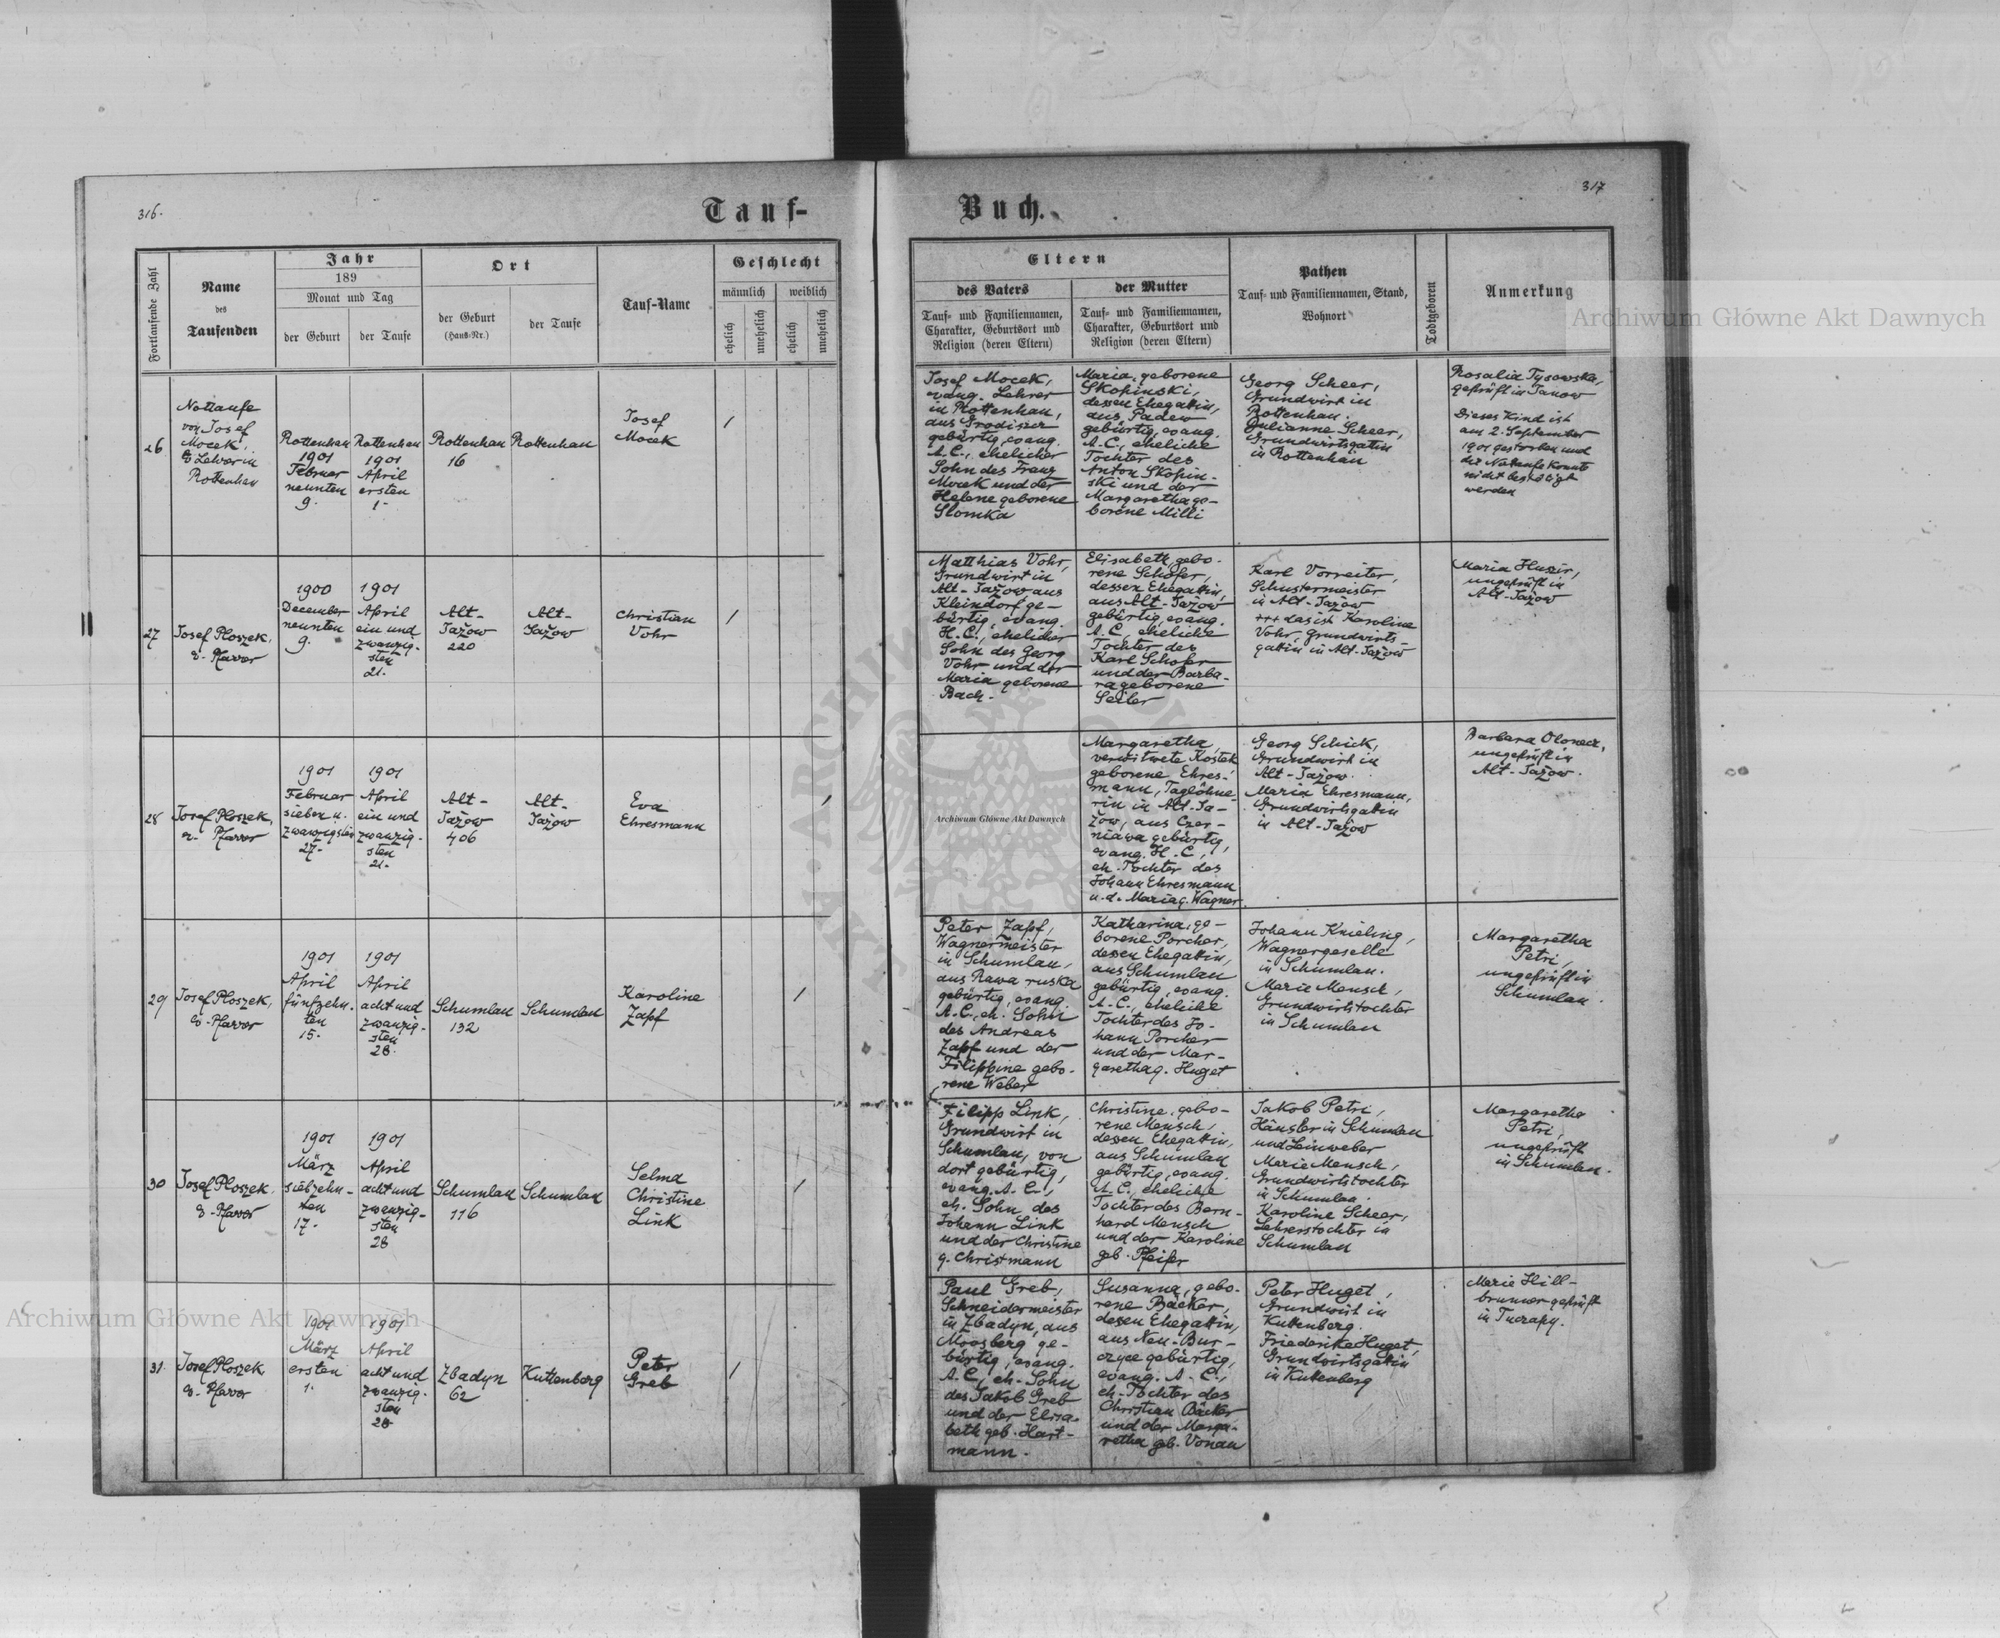 316.
Tauf-
Fortlaufende Zahl
Name
des
Taufenden
Jahr
189
Monat und Tag
der Geburt
der Taufe
Ort
der Geburt
(Haus-Nr.)
der Taufe
Tauf-Name
Geschlecht
männlich
weiblich
ehelich
unehelich
ehelich
unehelich
26
Nottaufe
von Josef
Mocek,
Lehrer in
Rottenhan
Rottenhan
1901
Februar
neunten
9.
Rottenhan
1901
April
ersten
1.
Rottenhan
16
Rottenhan
Josef
Mocek
/
27
Josef Ploszek,
Pfarrer
1900
December
neunten
9.
1901
April
ein und
zwanzig-
sten
21.
Alt-
Jažow
220
Alt-
Jažow
Christian
Vohr
/
28
Josef Ploszek,
Pfarrer
1901
Februar
sieben u.
zwanzigsten
27.
1901
April
ein und
zwanzig-
sten
21.
Alt-
Jažow
406
Alt-
Jažow
Eva
Ehresmann
/
29
Josef Ploszek,
Pfarrer
1901
April
fünfzehn-
ten
15.
1901
April
acht und
zwanzig-
sten
28.
Schumlau
132
Schumlau
Karoline
Zapf
/
30
Josef Ploszek,
Pfarrer
1901
März
siebzehn-
ten
17.
1901
April
acht und
zwanzig-
sten
28
Schumlau
116
Schumlau
Selma
Christine
Link
/
31.
Josef Ploszek
Pfarrer
1901
März
ersten
1.
1901
April
acht und
zwanzig-
sten
28
Zbadyn
62
Kuttenberg
Peter
Greb
/
317
Buch.
Eltern
des Vaters
Tauf- und Familiennamen,
Charakter, Geburtsort und
Religion (deren Eltern)
der Mutter
Tauf- und Familiennamen,
Charakter, Geburtsort und
Religion (deren Eltern)
Pathen
Tauf- und Familiennamen, Stand,
Wohnort
Todtgeboren
Anmerkung
Josef Mocek,
evang. Lehrer
in Rottenhan,
aus Grodiszcz
gebürtig, evang.
A.C., ehelicher
Sohn des Franz
Mocek und der
Helene geborene
Slomka
Maria, geborene
Skopinski,
dessen Ehegattin,
aus Padew
gebürtig, evang.
A.C., eheliche
Tochter des
Anton Skopin-
ski und der
Margaretha ge-
borene Milli
Georg Scheer,
Grundwirt in
Rottenhan.
Julianne Scheer,
Grundwirtsgattin
in Rottenhan
Rosalia Tysowska,
geprüft in Janow
Dieses Kind ist
am 2. September
1901 gestorben und
die Nottaufe konnte
nicht bestätigt
werden
Matthias Vohr,
Grundwirt in
Alt-Jažow aus
Kleindorf ge-
bürtig, evang.
H.C., ehelicher
Sohn des Georg
Vohr und der
Maria geborene
Bach.
Elisabeth, gebo-
rene Schofer,
dessen Ehegattin,
aus Alt-Jažow
gebürtig, evang.
A.C., eheliche
Tochter des
Karl Schofer
und der Barba-
ra geborene
Seiler
Karl Vorreiter,
Schustermeister
in Alt-Jažow
+++ das ist Karoline
Vohr, Grundwirts-
gattin in Alt-Jažow
Maria Huzir,
ungeprüft in
Alt-Jažow
Margaretha,
verwitwete Kostek
geborene Ehres-
mann, Taglöhne-
rin in Alt-Ja-
žow, aus Czer-
niawa gebürtig,
evang. H.C.,
eh. Tochter des
Johann Ehresmann
u.d. Maria g. Wagner.
Georg Schick,
Grundwirt in
Alt-Jažow.
Maria Ehresmann,
Grundwirtsgattin
in Alt-Jažow
Barbara Olonecz,
ungeprüft in
Alt-Jažow.
Peter Zapf,
Wagnermeister
in Schumlau,
aus Rawa ruska
gebürtig, evang.
A.C., eh. Sohn
des Andreas
Zapf und der
Filippine gebo-
rene Weber
Katharina, ge-
borene Porcher,
dessen Ehegattin,
aus Schumlau
gebürtig, evang.
A.C., eheliche
Tochter des Jo-
hann Porcher
und der Mar-
garetha g. Huget
Johann Knieling,
Wagnergeselle
in Schumlau.
Marie Mensch,
Grundwirtstochter
in Schumlau
Margaretha
Petri,
ungeprüft in
Schumlau.
Filipp Link,
Grundwirt in
Schumlau, von
dort gebürtig,
evang. A.C.,
eh. Sohn des
Johann Link
und der Christine
g. Christmann
Christine, gebo-
rene Mensch,
dessen Ehegattin,
aus Schumlau
gebürtig, evang.
A.C., eheliche
Tochter des Bern-
hard Mensch
und der Karoline
geb. Pfeifer
Jakob Petri,
Häusler in Schumlau
und Leinweber
Marie Mensch,
Grundwirtstochter
in Schumlau.
Karoline Scheer,
Lehrerstochter in
Schumlau
Margaretha
Petri,
ungeprüft
in Schumlau.
Paul Greb,
Schneidermeister
in Zbadyn, aus
Moosberg ge-
bürtig, evang.
A.C., eh. Sohn
des Jakob Greb
und der Elisa-
beth geb. Hart-
mann.
Susanna, gebo-
rene Bäcker,
dessen Ehegattin,
aus Neu-Bur-
czyce gebürtig,
evang. A.C.,
eh. Tochter des
Christian Bäcker
und der Marga-
retha geb. Vonau
Peter Huget,
Grundwirt in
Kuttenberg.
Friederike Huget,
Grundwirtsgattin
in Kuttenberg
Marie Hill-
brunner geprüft
in Tuczapy.
Archiwum Główne Akt Dawnych
Archiwum Główne Akt Dawnych
Archiwum Główne Akt Dawnych